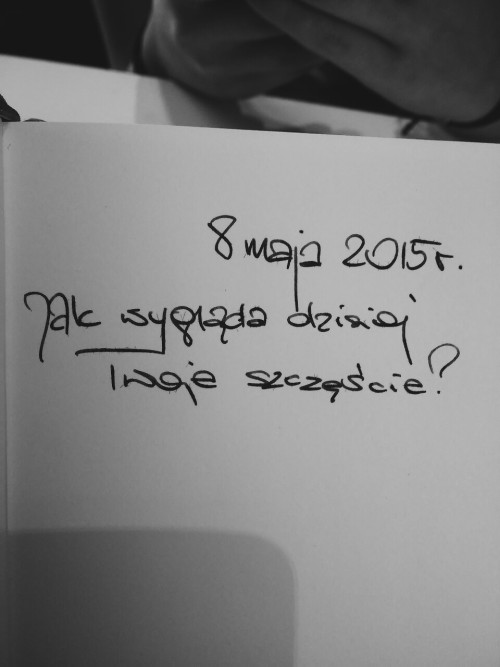 8 maja 2015r.
Jak wygląda dzisiaj
Twoje szczęście?